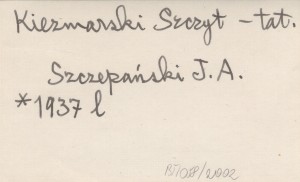 Kiezmarski Szczyt - tat.
Szczepański J.A.
*1937 l